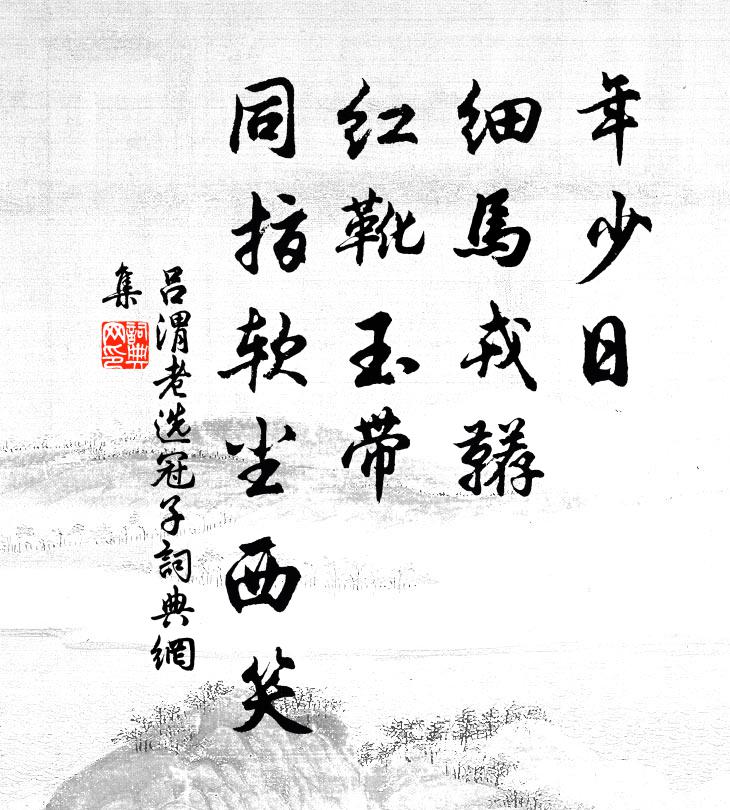 年少日
细馬戎鞯
红靴玉带
同指软尘西笑
吕渭老选冠子詞典網
集
詞典
网印